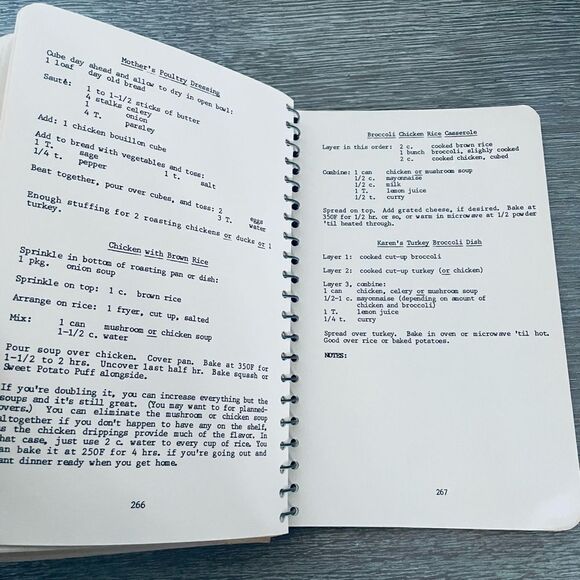 Mother's Poultry Dressing
Cube day ahead and allow to dry in open bowl:
1 loaf day old bread
Sauté: 1 to 1-1/2 sticks of butter
4 stalks celery
1 onion
4 T. parsley
Add: 1 chicken bouillon cube
Add to bread with vegetables and toss:
1 T. sage 1 t. salt
1/4 t. pepper
Beat together, pour over cubes, and toss: 2 eggs
3 T. water
Enough stuffing for 2 roasting chickens or ducks or 1
turkey.
Chicken with Brown Rice
Sprinkle in bottom of roasting pan or dish:
1 pkg. onion soup
Sprinkle on top: 1 c. brown rice
Arrange on rice: 1 fryer, cut up, salted
Mix: 1 can mushroom or chicken soup
1-1/2 c. water
Pour soup over chicken. Cover pan. Bake at 350F for
1-1/2 to 2 hrs. Uncover last half hr. Bake squash or
Sweet Potato Puff alongside.
If you're doubling it, you can increase everything but the
soups and it's still great. (You may want to for planned-
overs.) You can eliminate the mushroom or chicken soup
altogether if you don't happen to have any on the shelf,
as the chicken drippings provide much of the flavor. In
that case, just use 2 c. water to every cup of rice. You
can bake it at 250F for 4 hrs. if you're going out and
want dinner ready when you get home.
266
Broccoli Chicken Rice Casserole
Layer in this order: 2 c. cooked brown rice
1 bunch broccoli, slighly cooked
2 c. cooked chicken, cubed
Combine: 1 can chicken or mushroom soup
1/2 c. mayonnaise
1/2 c. milk
1 T. lemon juice
1/2 t. curry
Spread on top. Add grated cheese, if desired. Bake at
350F for 1/2 hr. or so, or warm in microwave at 1/2 power
'til heated through.
Karen's Turkey Broccoli Dish
Layer 1: cooked cut-up broccoli
Layer 2: cooked cut-up turkey (or chicken)
Layer 3, combine:
1 can chicken, celery or mushroom soup
1/2-1 c. mayonnaise (depending on amount of
chicken and broccoli)
1 T. lemon juice
1/4 t. curry
Spread over turkey. Bake in oven or microwave 'til hot.
Good over rice or baked potatoes.
NOTES:
267